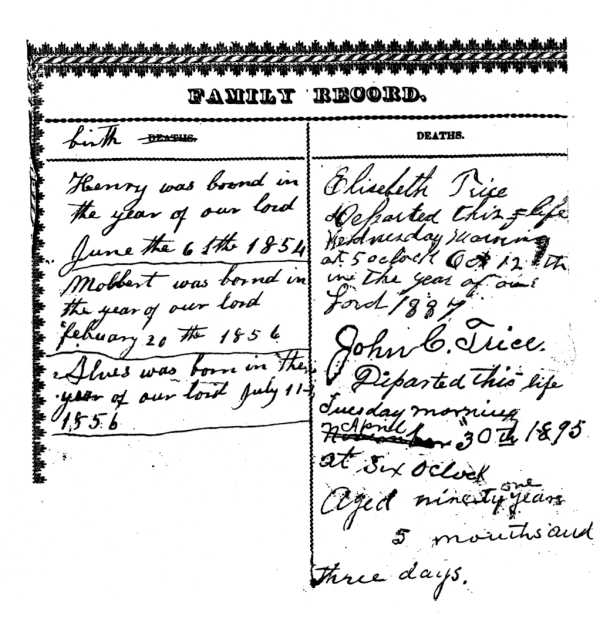 FAMILY RECORD.
birth DEATHS.
Henry was bornd in
the year of our lord
June the 6 1854
Mobbert was bornd in
the year of our lord
february 20 th 1856
Alves was born in the
year of our lord July 11
1856
DEATHS.
Elisebeth Trice
Departed this life
Wednesday Morning
at 5 oclock Oct 12 th
in the year of our
Lord 1887
John C. Trice.
Diparted this life
Tuesday morning
April 30th 1895
at Six Oclock
Aged ninety one years
5 months and
three days.